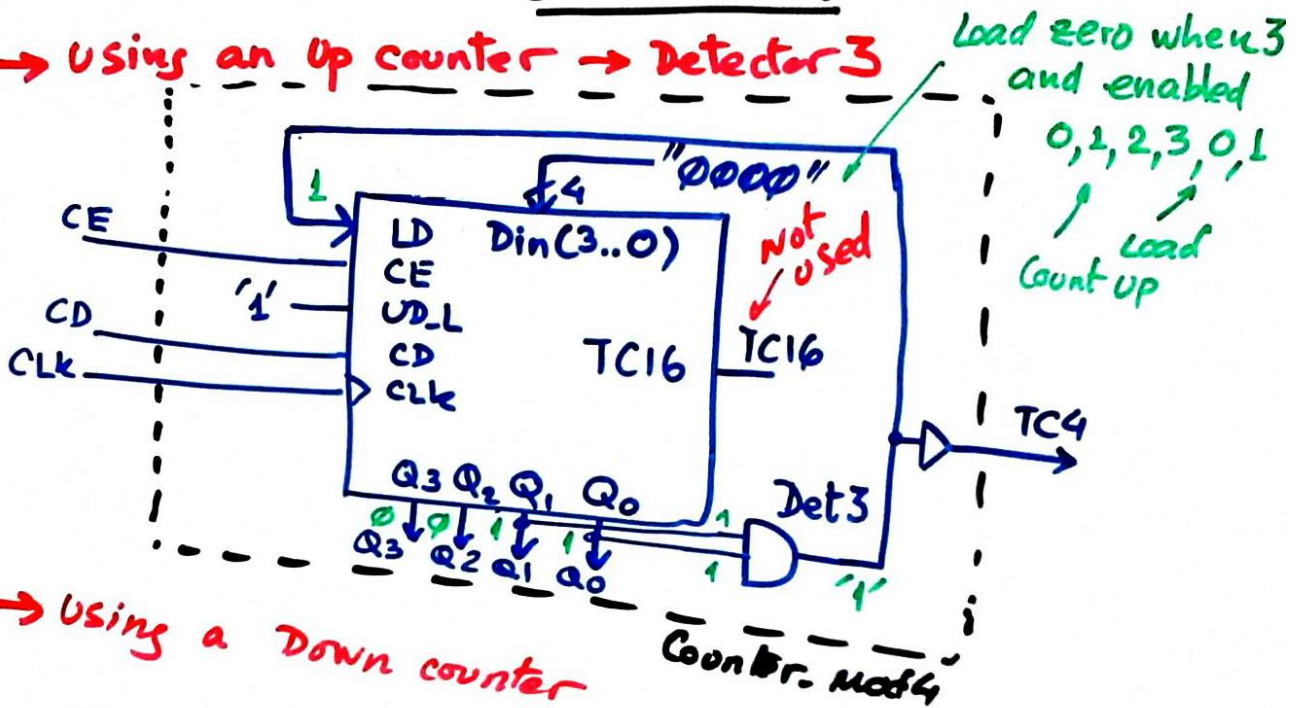 → Using an Up counter → Detector 3
Load zero when 3
and enabled
0,1,2,3,0,1
Count up
Load
"0000"
4
1
CE
'1'
CD
CLK
LD
Din(3..0)
CE
UD_L
CD
CLK
TC16
Not used
TC16
TC4
Q3 Q2 Q1 Q0
0 0 1 1
Q3 Q2 Q1 Q0
1
1
Det3
'1'
→ Using a Down counter
Counter_mod4